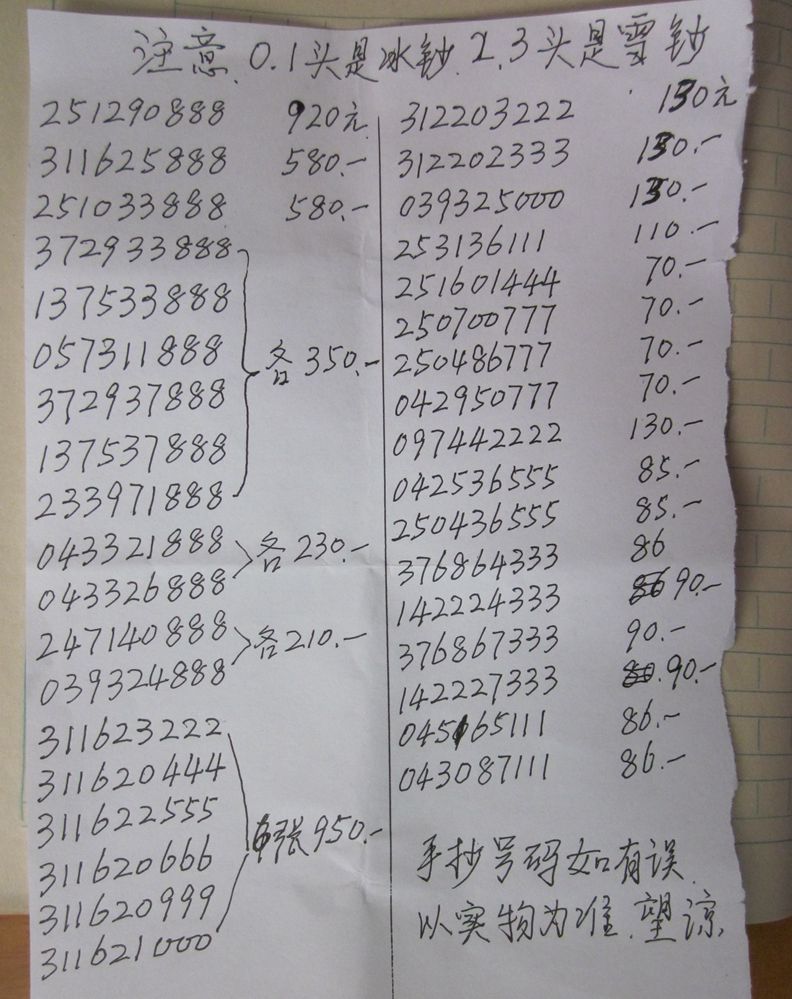 注意、0.1头是冰钞.2.3头是雪钞
251290888 920元
311625888 580.—
251033888 580.—
372933888
137533888
057311888
372937888
137537888
233971888
各350.—
043321888
043326888
各230.—
247140888
039324888
各210.—
311623222
311620444
311622555
311620666
311620999
311621000
6张950.—
312203222 130元
312202333 130.—
039325000 130.—
253136111 110.—
251601444 70.—
250700777 70.—
250486777 70.—
042950777 70.—
097442222 130.—
042536555 85.—
250436555 85.—
376864333 86
142224333 86 90.—
376867333 90.—
142227333 80.90.—
045165111 86.—
043087111 86.—
手抄号码如有误.
以实物为准.望谅.